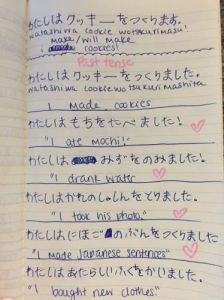 わたしはクッキーをつくります。
watashiwa cookie wotsukurimasu!
make/will make
i cookies!
Past tense
わたしはクッキーをつくりました。
watashiwa cookie wo tsukuri mashita
I made cookies
わたしはもちをたべました!
"I ate mochi!"
わたしはみずをのみました!
"I drank water
わたしはかれのしゃしんをとりました。
"I took his photo."
わたしはにほごのぶんをつくりました
"I made Japanese sentences"
わたしはあたらしいふくをかいました。
"I bought new clothes"